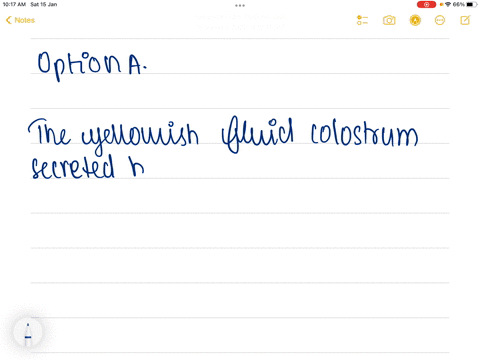 10:17 AM Sat 15 Jan
66%
Notes
Option A.
The yellowish fluid colostrum
secreted